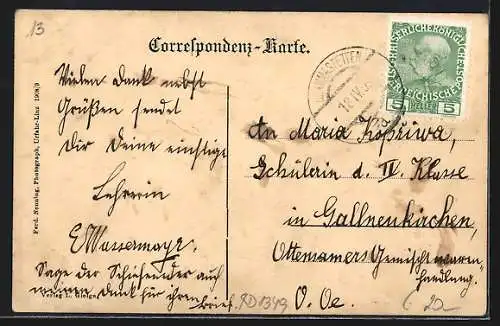 13
Correspondenz-Karte.
Vielen Dank nebst
Grüßen sendet
Dir Deine einstige
Lehrerin
E Wassermayr.
Sage der auch
meinen Dank für ihren
brief.
An Maria Kopriwa,
Schülerin d. IV. Klasse
in Gallneukirchen,
Ottensamers Gemischtwaren-
handlung.
O. Oe.
KAISERLICHE KÖNIGLICHE
ÖSTERREICHISCHE POST
5 HELLER 5
18 IV
Ferd. Nenning, Photograph, Urfahr-Linz 1908/9
Verlag L.
RD1349